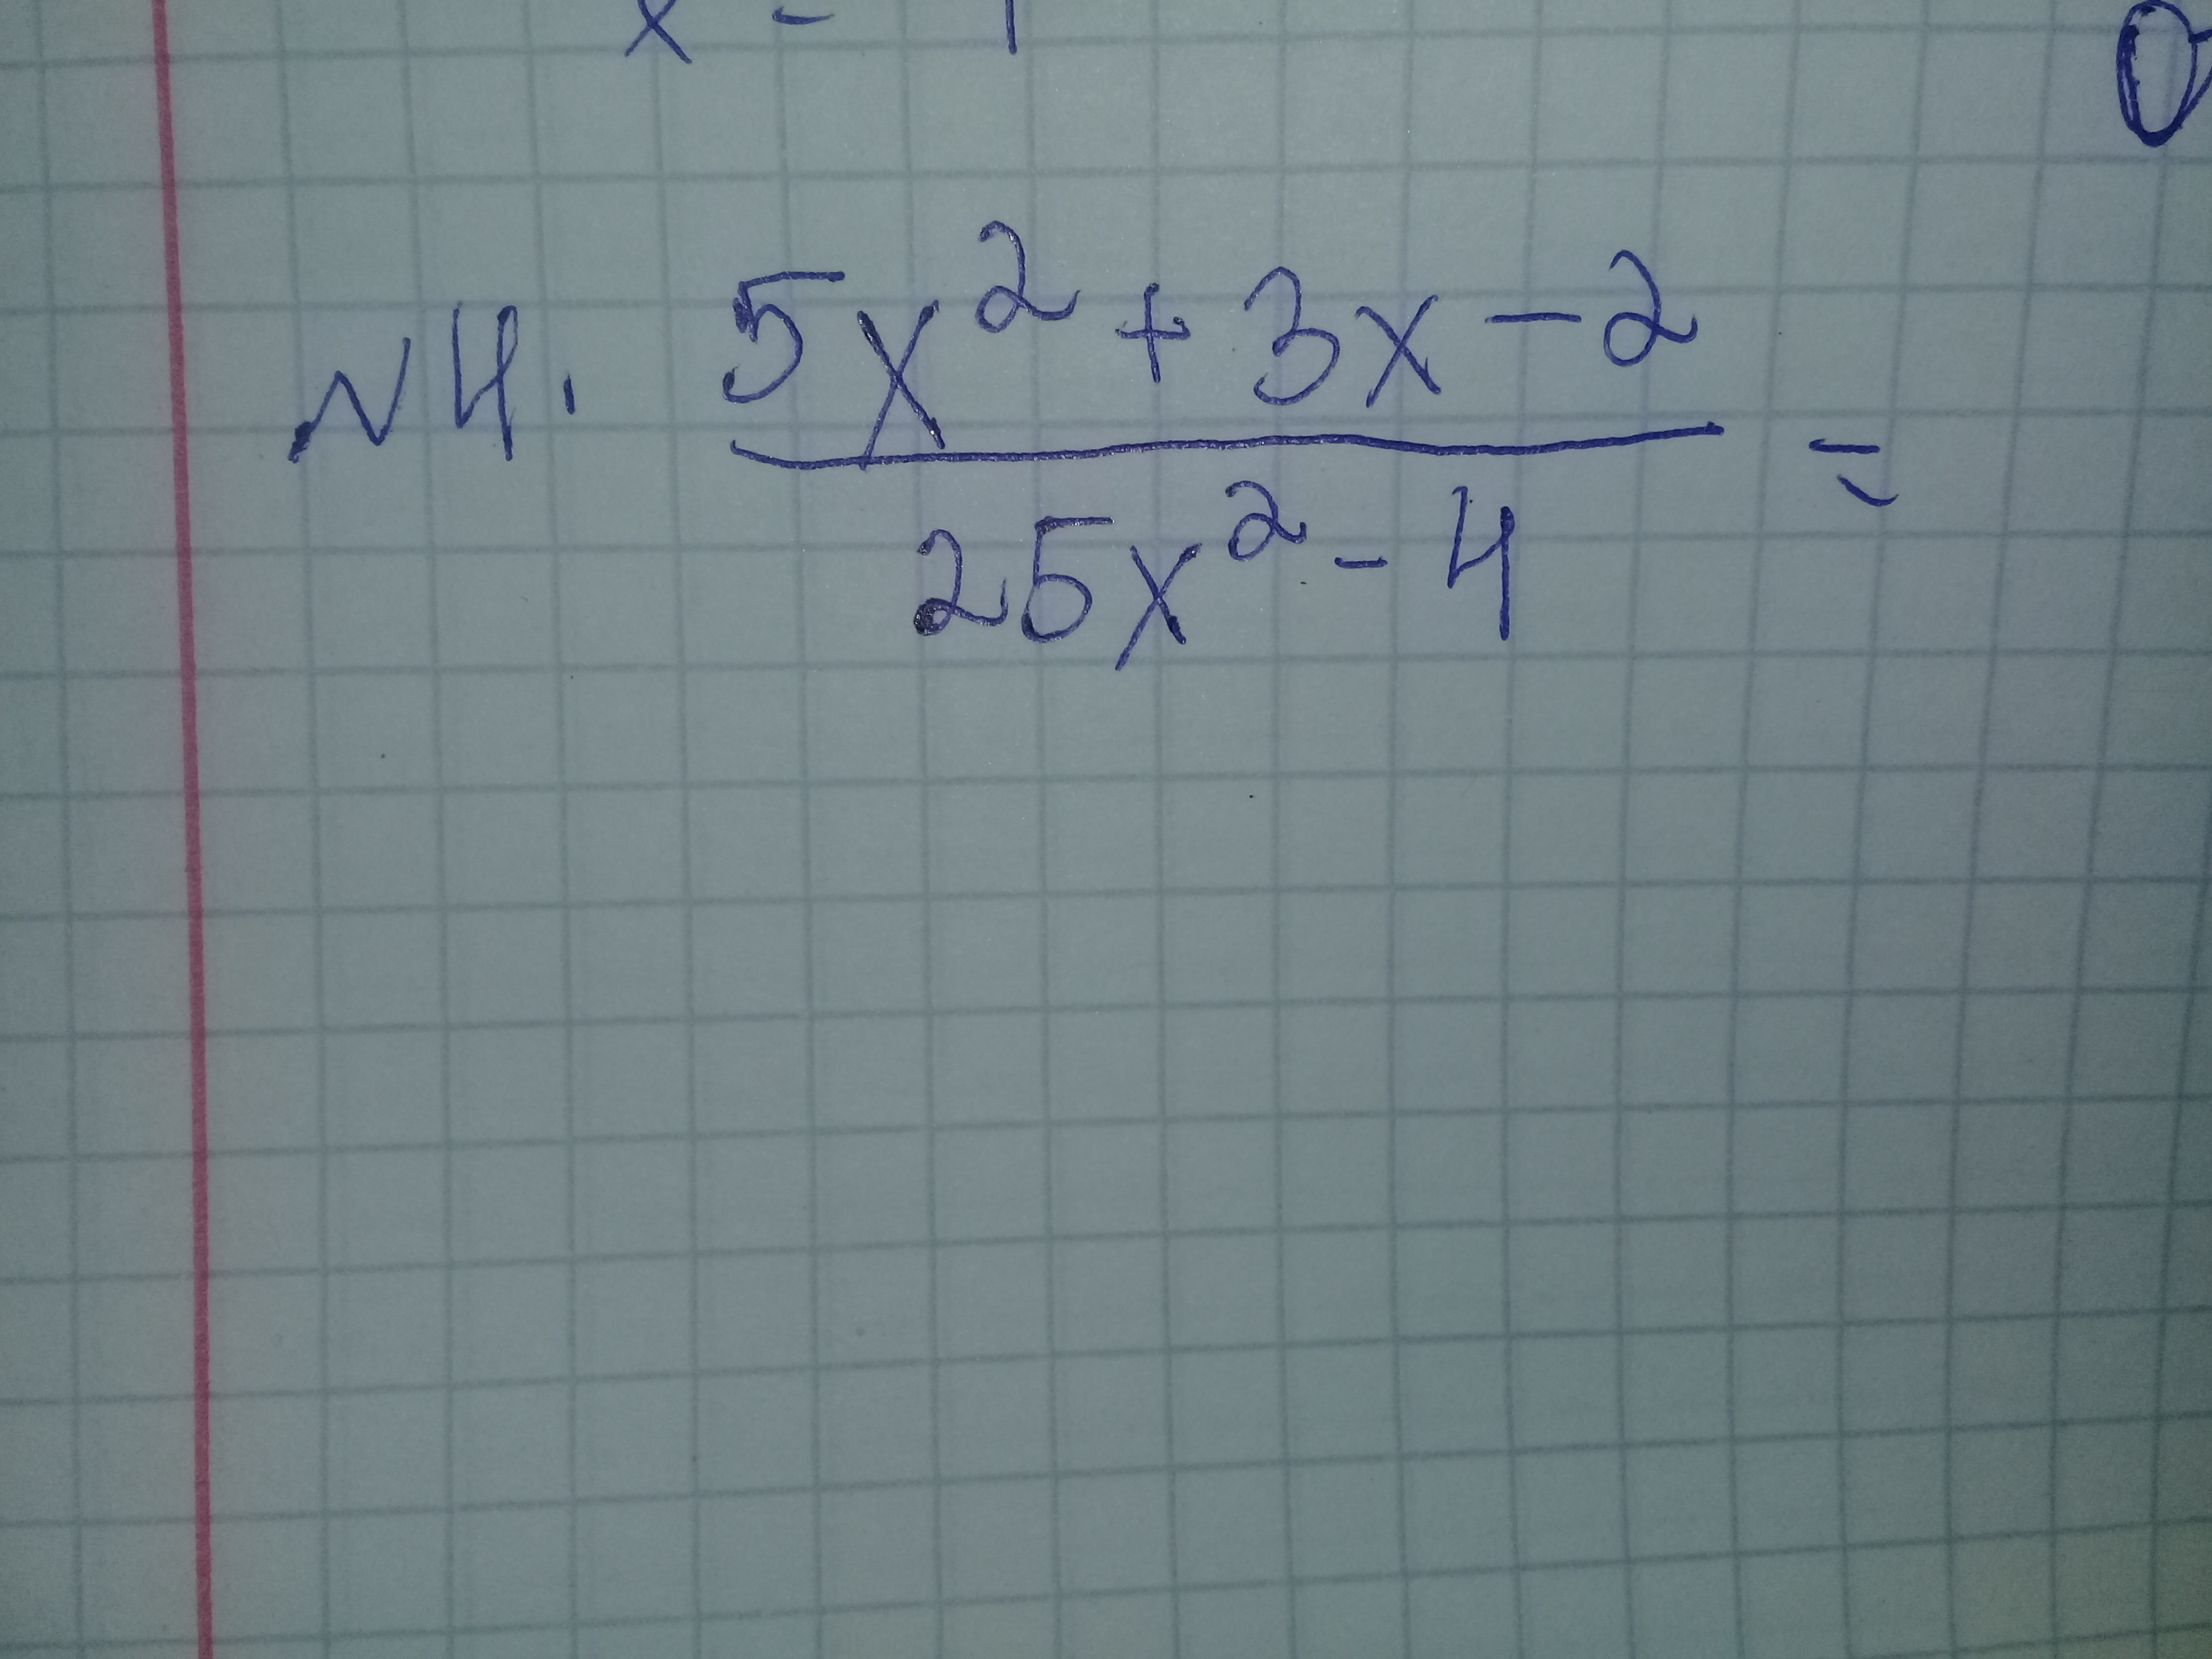 N4. (5x² + 3x - 2) / (25x² - 4) =